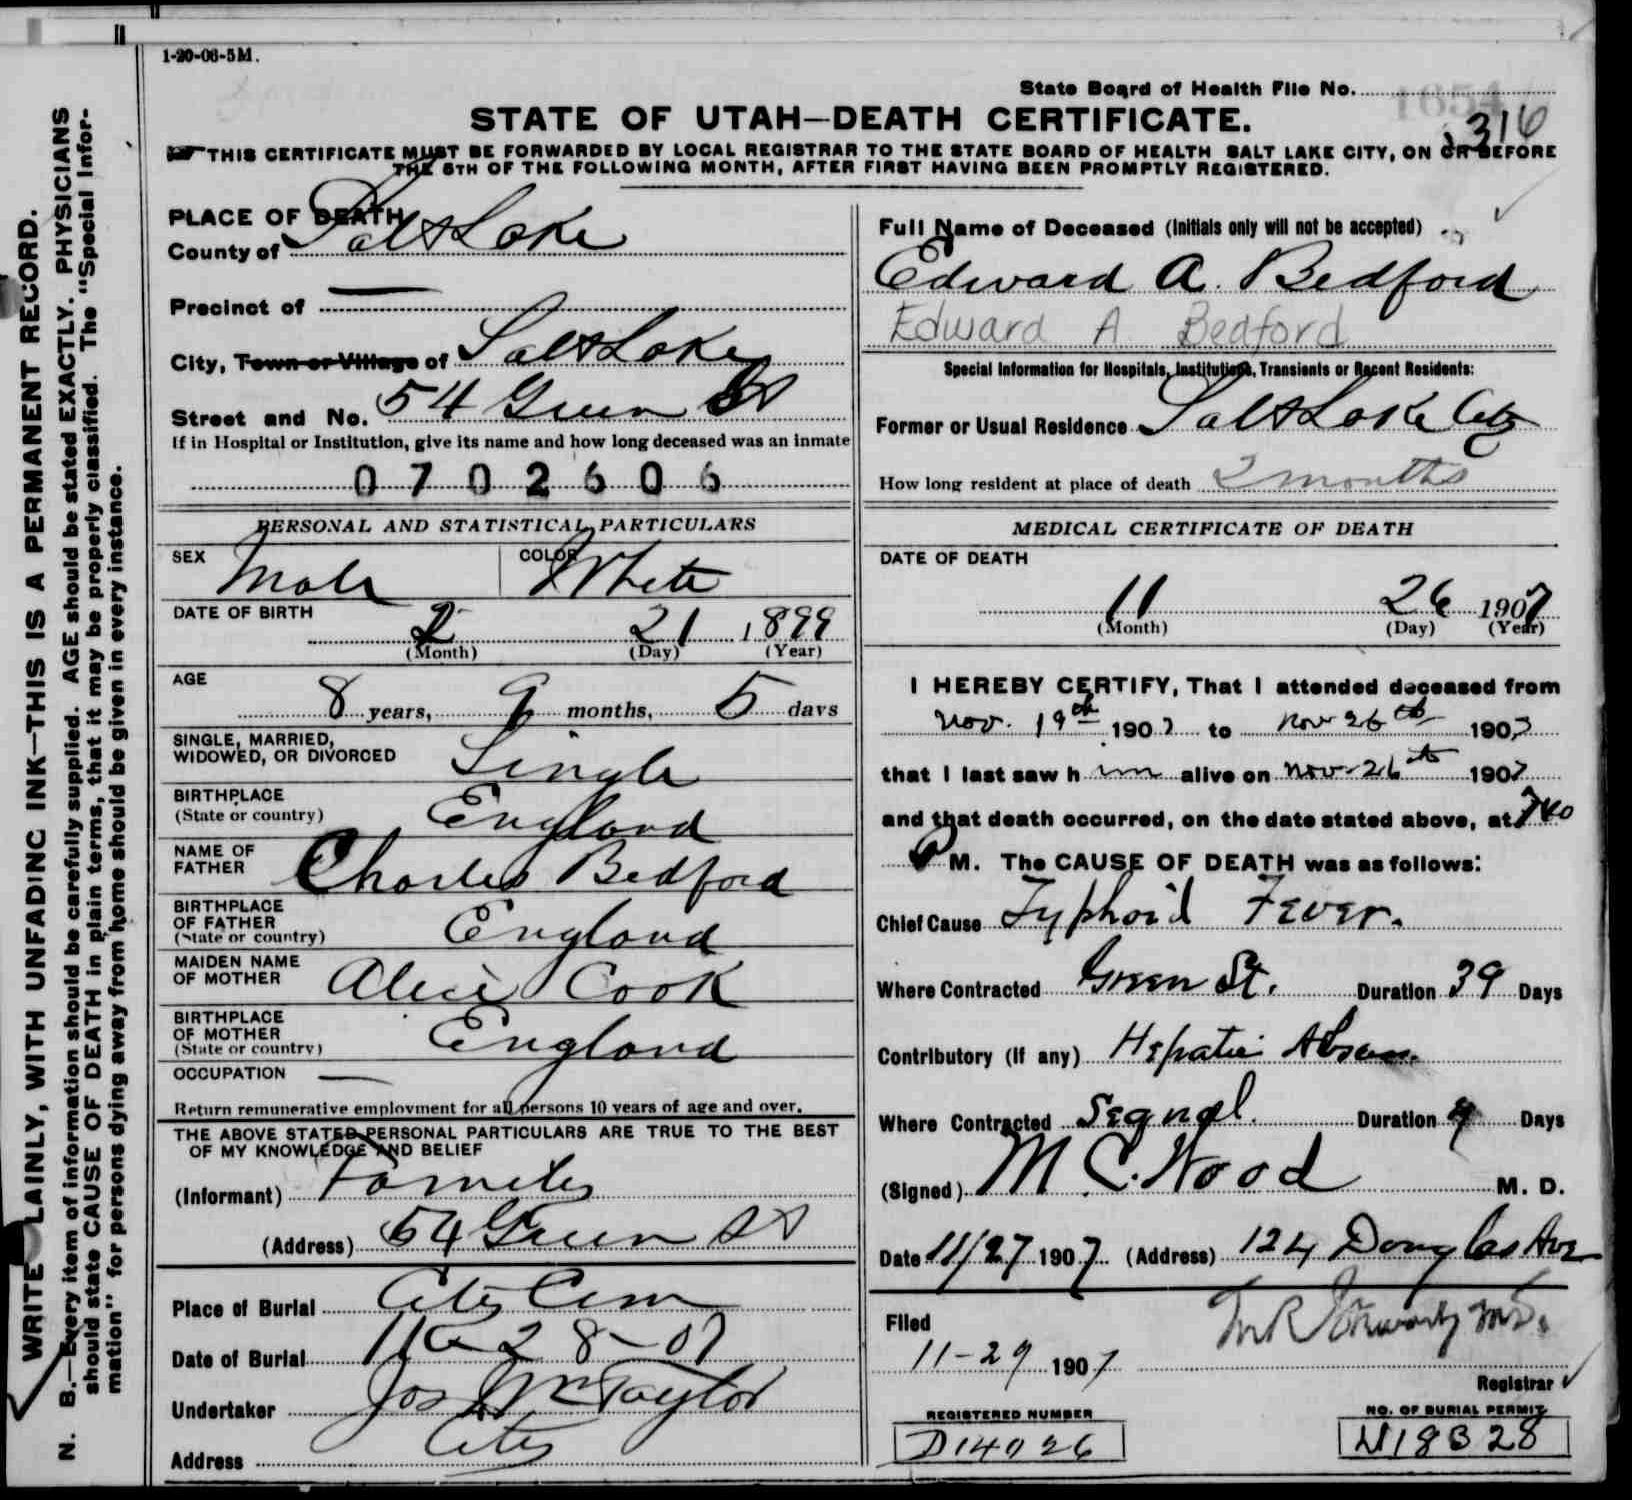 1-20-06-5M.
State Board of Health File No. 1654
1316
STATE OF UTAH—DEATH CERTIFICATE.
THIS CERTIFICATE MUST BE FORWARDED BY LOCAL REGISTRAR TO THE STATE BOARD OF HEALTH SALT LAKE CITY, ON OR BEFORE
THE 5TH OF THE FOLLOWING MONTH, AFTER FIRST HAVING BEEN PROMPTLY REGISTERED.
WRITE PLAINLY, WITH UNFADING INK—THIS IS A PERMANENT RECORD.
N. B.—Every item of information should be carefully supplied. AGE should be stated EXACTLY. PHYSICIANS
should state CAUSE OF DEATH in plain terms, that it may be properly classified. The "Special Infor-
mation" for persons dying away from home should be given in every instance.
PLACE OF DEATH
County of Salt Lake
Precinct of —
City, Town or Village of Salt Lake
Street and No. 54 Green St
If in Hospital or Institution, give its name and how long deceased was an inmate
0702606
PERSONAL AND STATISTICAL PARTICULARS
SEX Male COLOR White
DATE OF BIRTH
2 21 1899
(Month) (Day) (Year)
AGE
8 years, 9 months, 5 days
SINGLE, MARRIED,
WIDOWED, OR DIVORCED Single
BIRTHPLACE
(State or country) England
NAME OF
FATHER Charles Bedford
BIRTHPLACE
OF FATHER
(State or country) England
MAIDEN NAME
OF MOTHER Alice Cook
BIRTHPLACE
OF MOTHER
(State or country) England
OCCUPATION —
Return remunerative employment for all persons 10 years of age and over.
THE ABOVE STATED PERSONAL PARTICULARS ARE TRUE TO THE BEST
OF MY KNOWLEDGE AND BELIEF
(Informant) Family
(Address) 54 Green St
Place of Burial City Cem
Date of Burial 11-28-07
Undertaker Jos Wm Taylor
Address City
Full Name of Deceased (Initials only will not be accepted)
Edward A. Bedford
Edward A Bedford
Special Information for Hospitals, Institutions, Transients or Recent Residents:
Former or Usual Residence Salt Lake City
How long resident at place of death 2 months
MEDICAL CERTIFICATE OF DEATH
DATE OF DEATH
11 26 1907
(Month) (Day) (Year)
I HEREBY CERTIFY, That I attended deceased from
Nov. 19th 1907 to Nov 26th 1907
that I last saw him alive on Nov-26th 1907
and that death occurred, on the date stated above, at 740
P M. The CAUSE OF DEATH was as follows:
Chief Cause Typhoid Fever.
Where Contracted Green St. Duration 39 Days
Contributory (if any) Hepatic Abscess
Where Contracted Duration 4 Days
(Signed) M C. Wood M. D.
Date 11/27 1907 (Address) 124 Douglas Ave
Filed
11-29 1907
Registrar
REGISTERED NUMBER
D14026
NO. OF BURIAL PERMIT
N18328